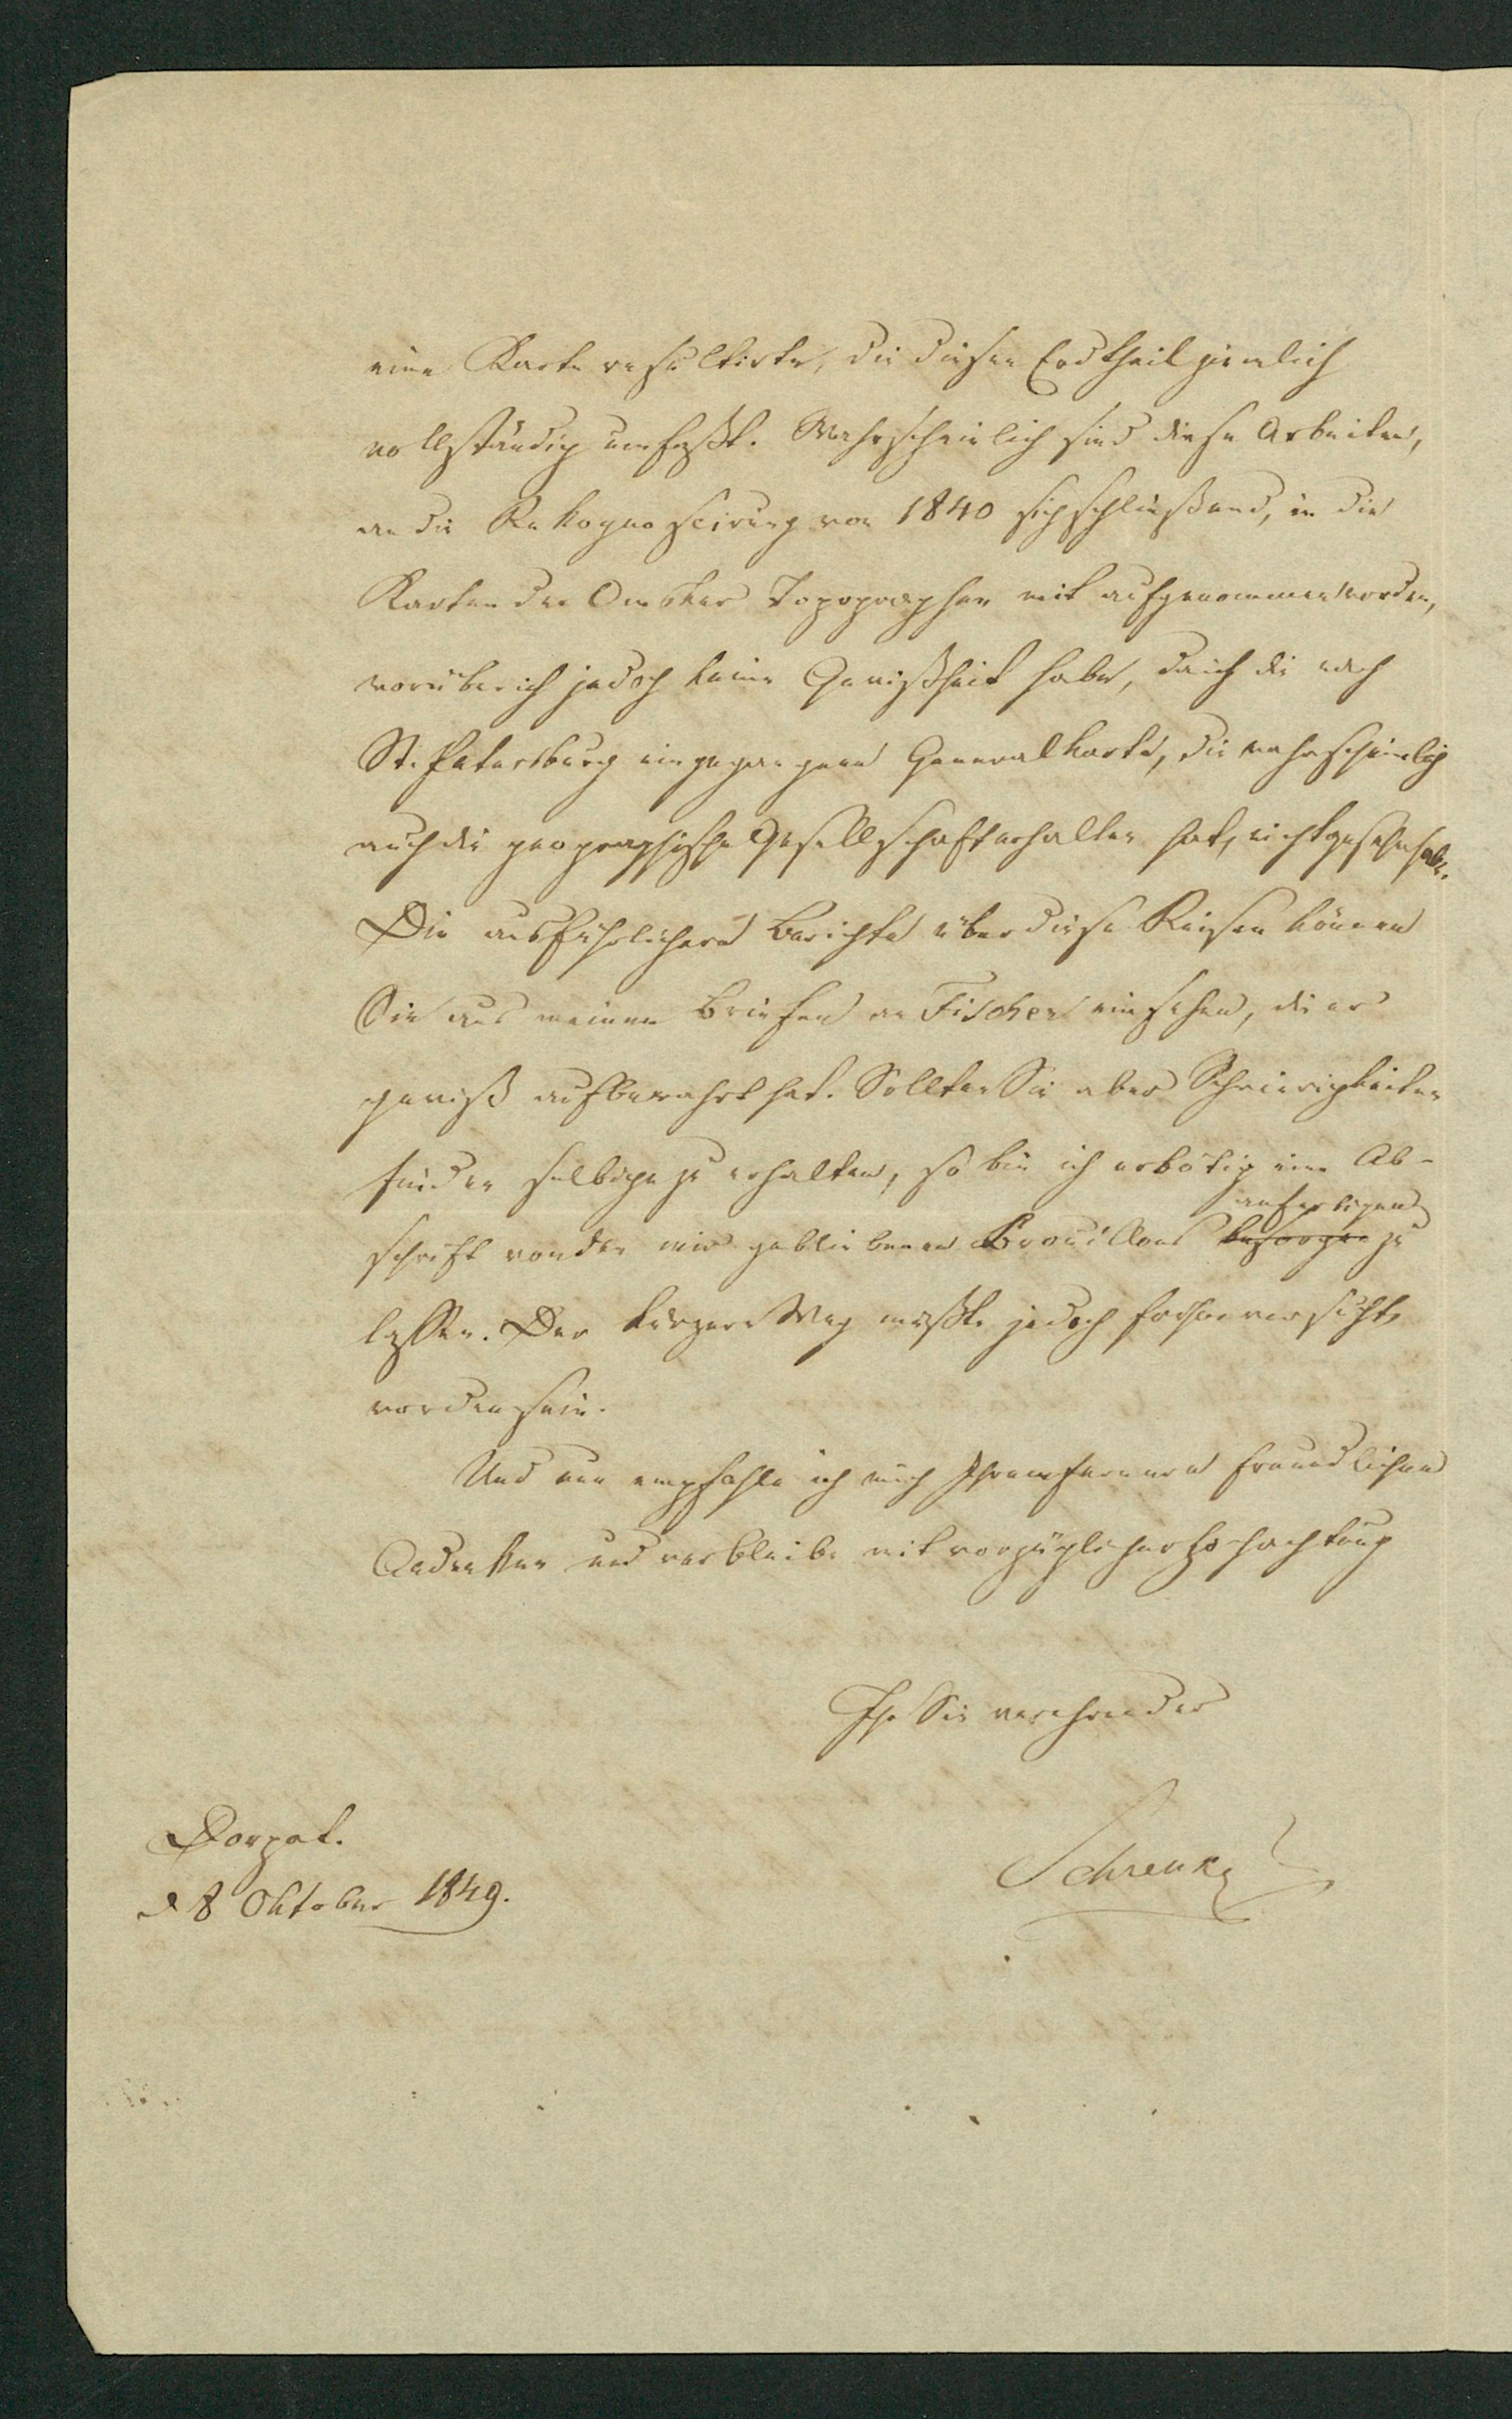 eine Karte resultirte, die diesen Erdtheil ziemlich
vollständig umfaßt. Wahrscheinlich sind diese Arbeiten,
an die Rekognoscirung von 1840 sich schließend, in die
Karten der Omsker Topographen mit aufgenommen worden,
worüber ich jedoch keine Gewißheit habe, da ich die nach
St. Petersburg eingegangene Generalkarte, die wahrscheinlich
auch die geographische Gesellschaft erhalten hat, nicht gesehn habe.
Die ausführlichern Berichte über diese Reisen können
Sie aus meinen Briefen an Fischer einsehen, die er
gewiß aufbewahrt hat. Sollten Sie aber Schwierigkeiten
finden selbige zu erhalten, so bin ich erbötig eine Ab-
anfertigen
schrift von den mir gebliebenen Brouillons besorgen zu
lassen. Der kürzere Weg müßte jedoch vorher versucht
worden sein.
Und nun empfehle ich mich Ihrem ferneren freundlichen
Andenken und verbleibe mit vorzüglicher Hochachtung
Ihr Sie verehrender
Schrenk
Dorpat.
d 8 Oktober 1849.